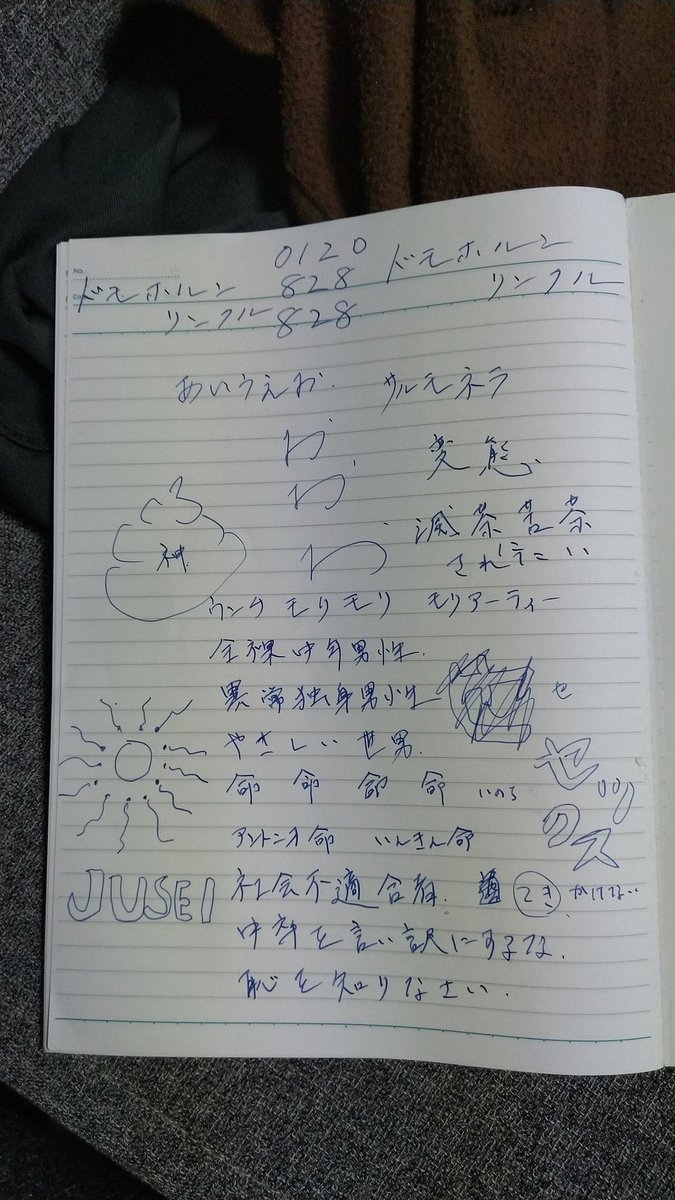 No.
0120
ドモホルン 828 ドモホルン
リンクル 828 リンクル
あいうえお サルモネラ
お
お
お
変態
滅茶苦茶
されてこい
神
ウンチ モリモリ モリアーティー
全裸中年男性.
異常独身男性
セ
やさしい世男.
セックス
命 命 命 命 いのち
アントニオ命 いんきん命
JUSEI
社会不適合者. てき かけてない
中卒を言い訳にするな.
恥を知りなさい.